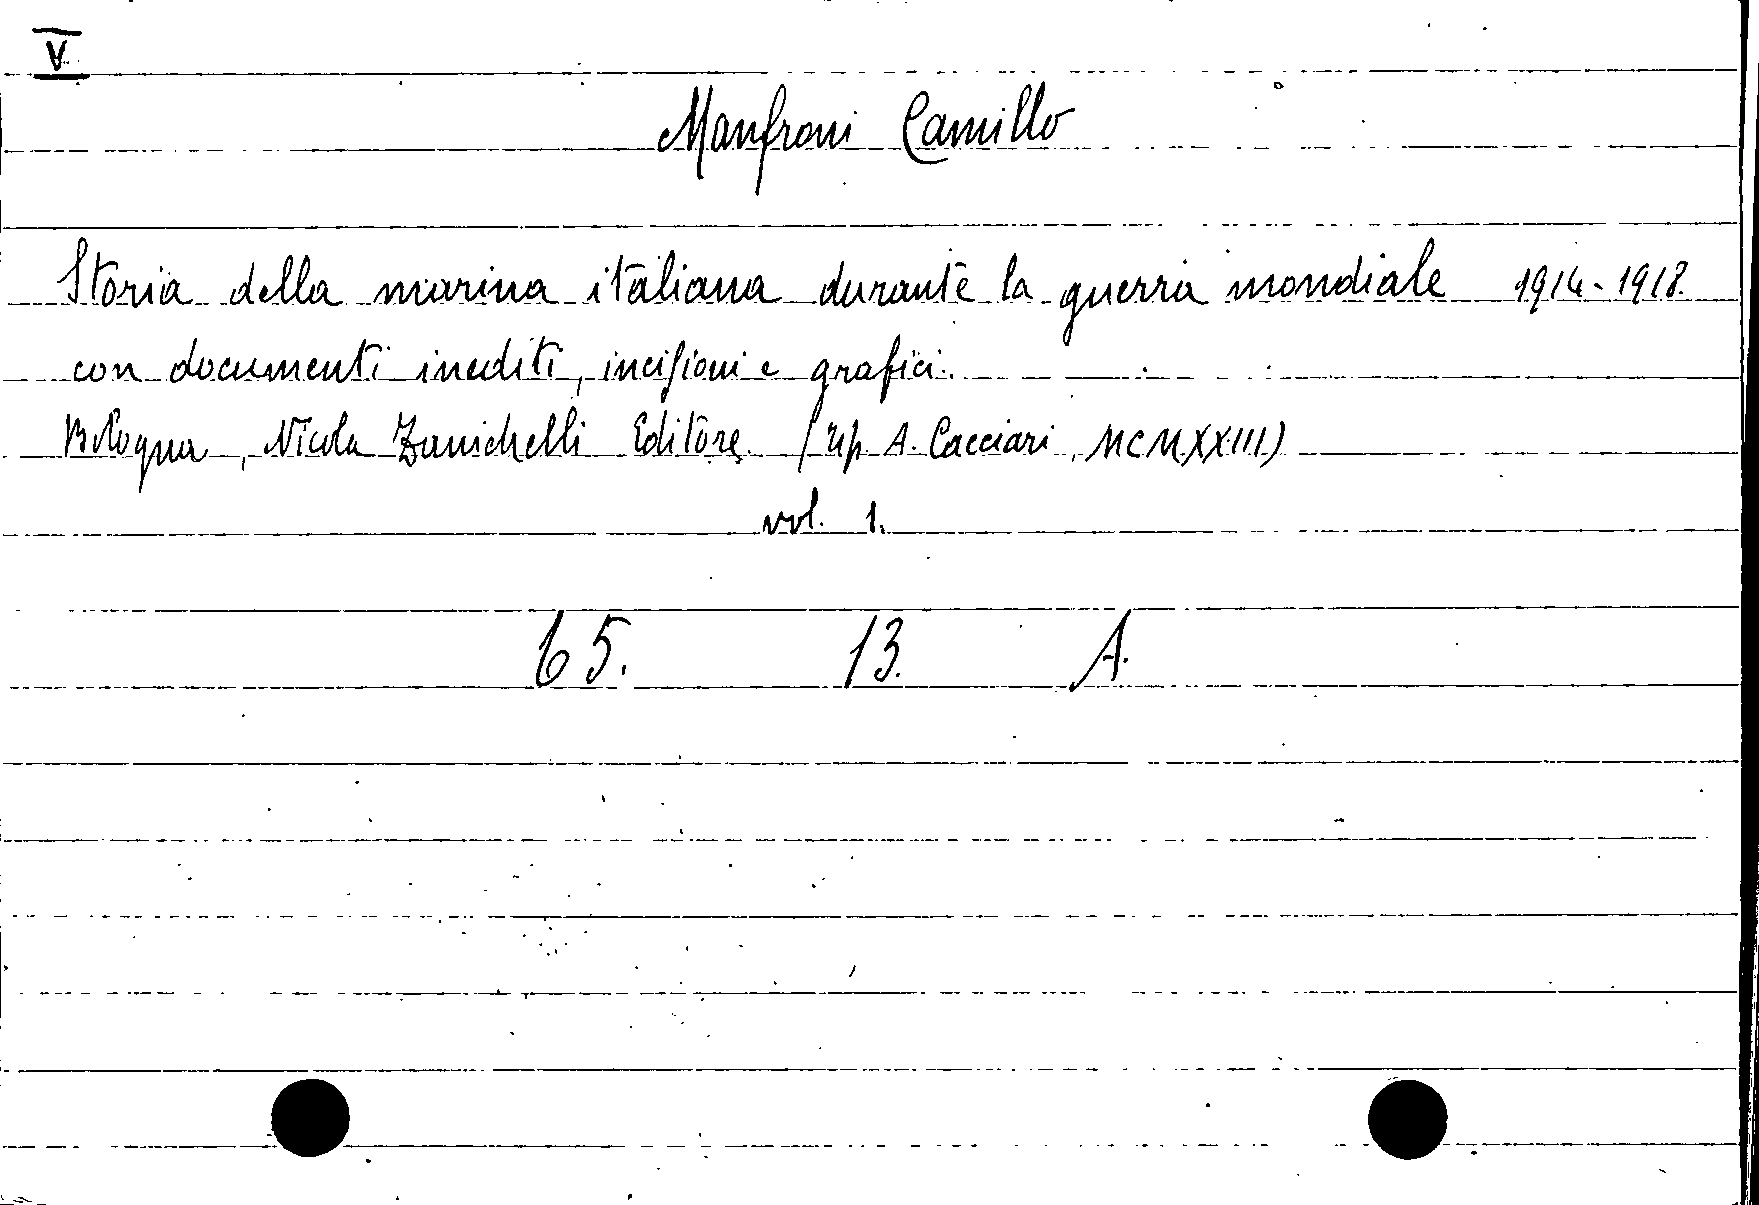 V
Manfroni Camillo
Storia della marina italiana durante la guerra mondiale 1914-1918.
con documenti inediti, incisioni e grafici.
Bologna, Nicola Zanichelli Editore (tip A. Cacciari, MCMXXIII)
vol. 1.
65. 13. A.